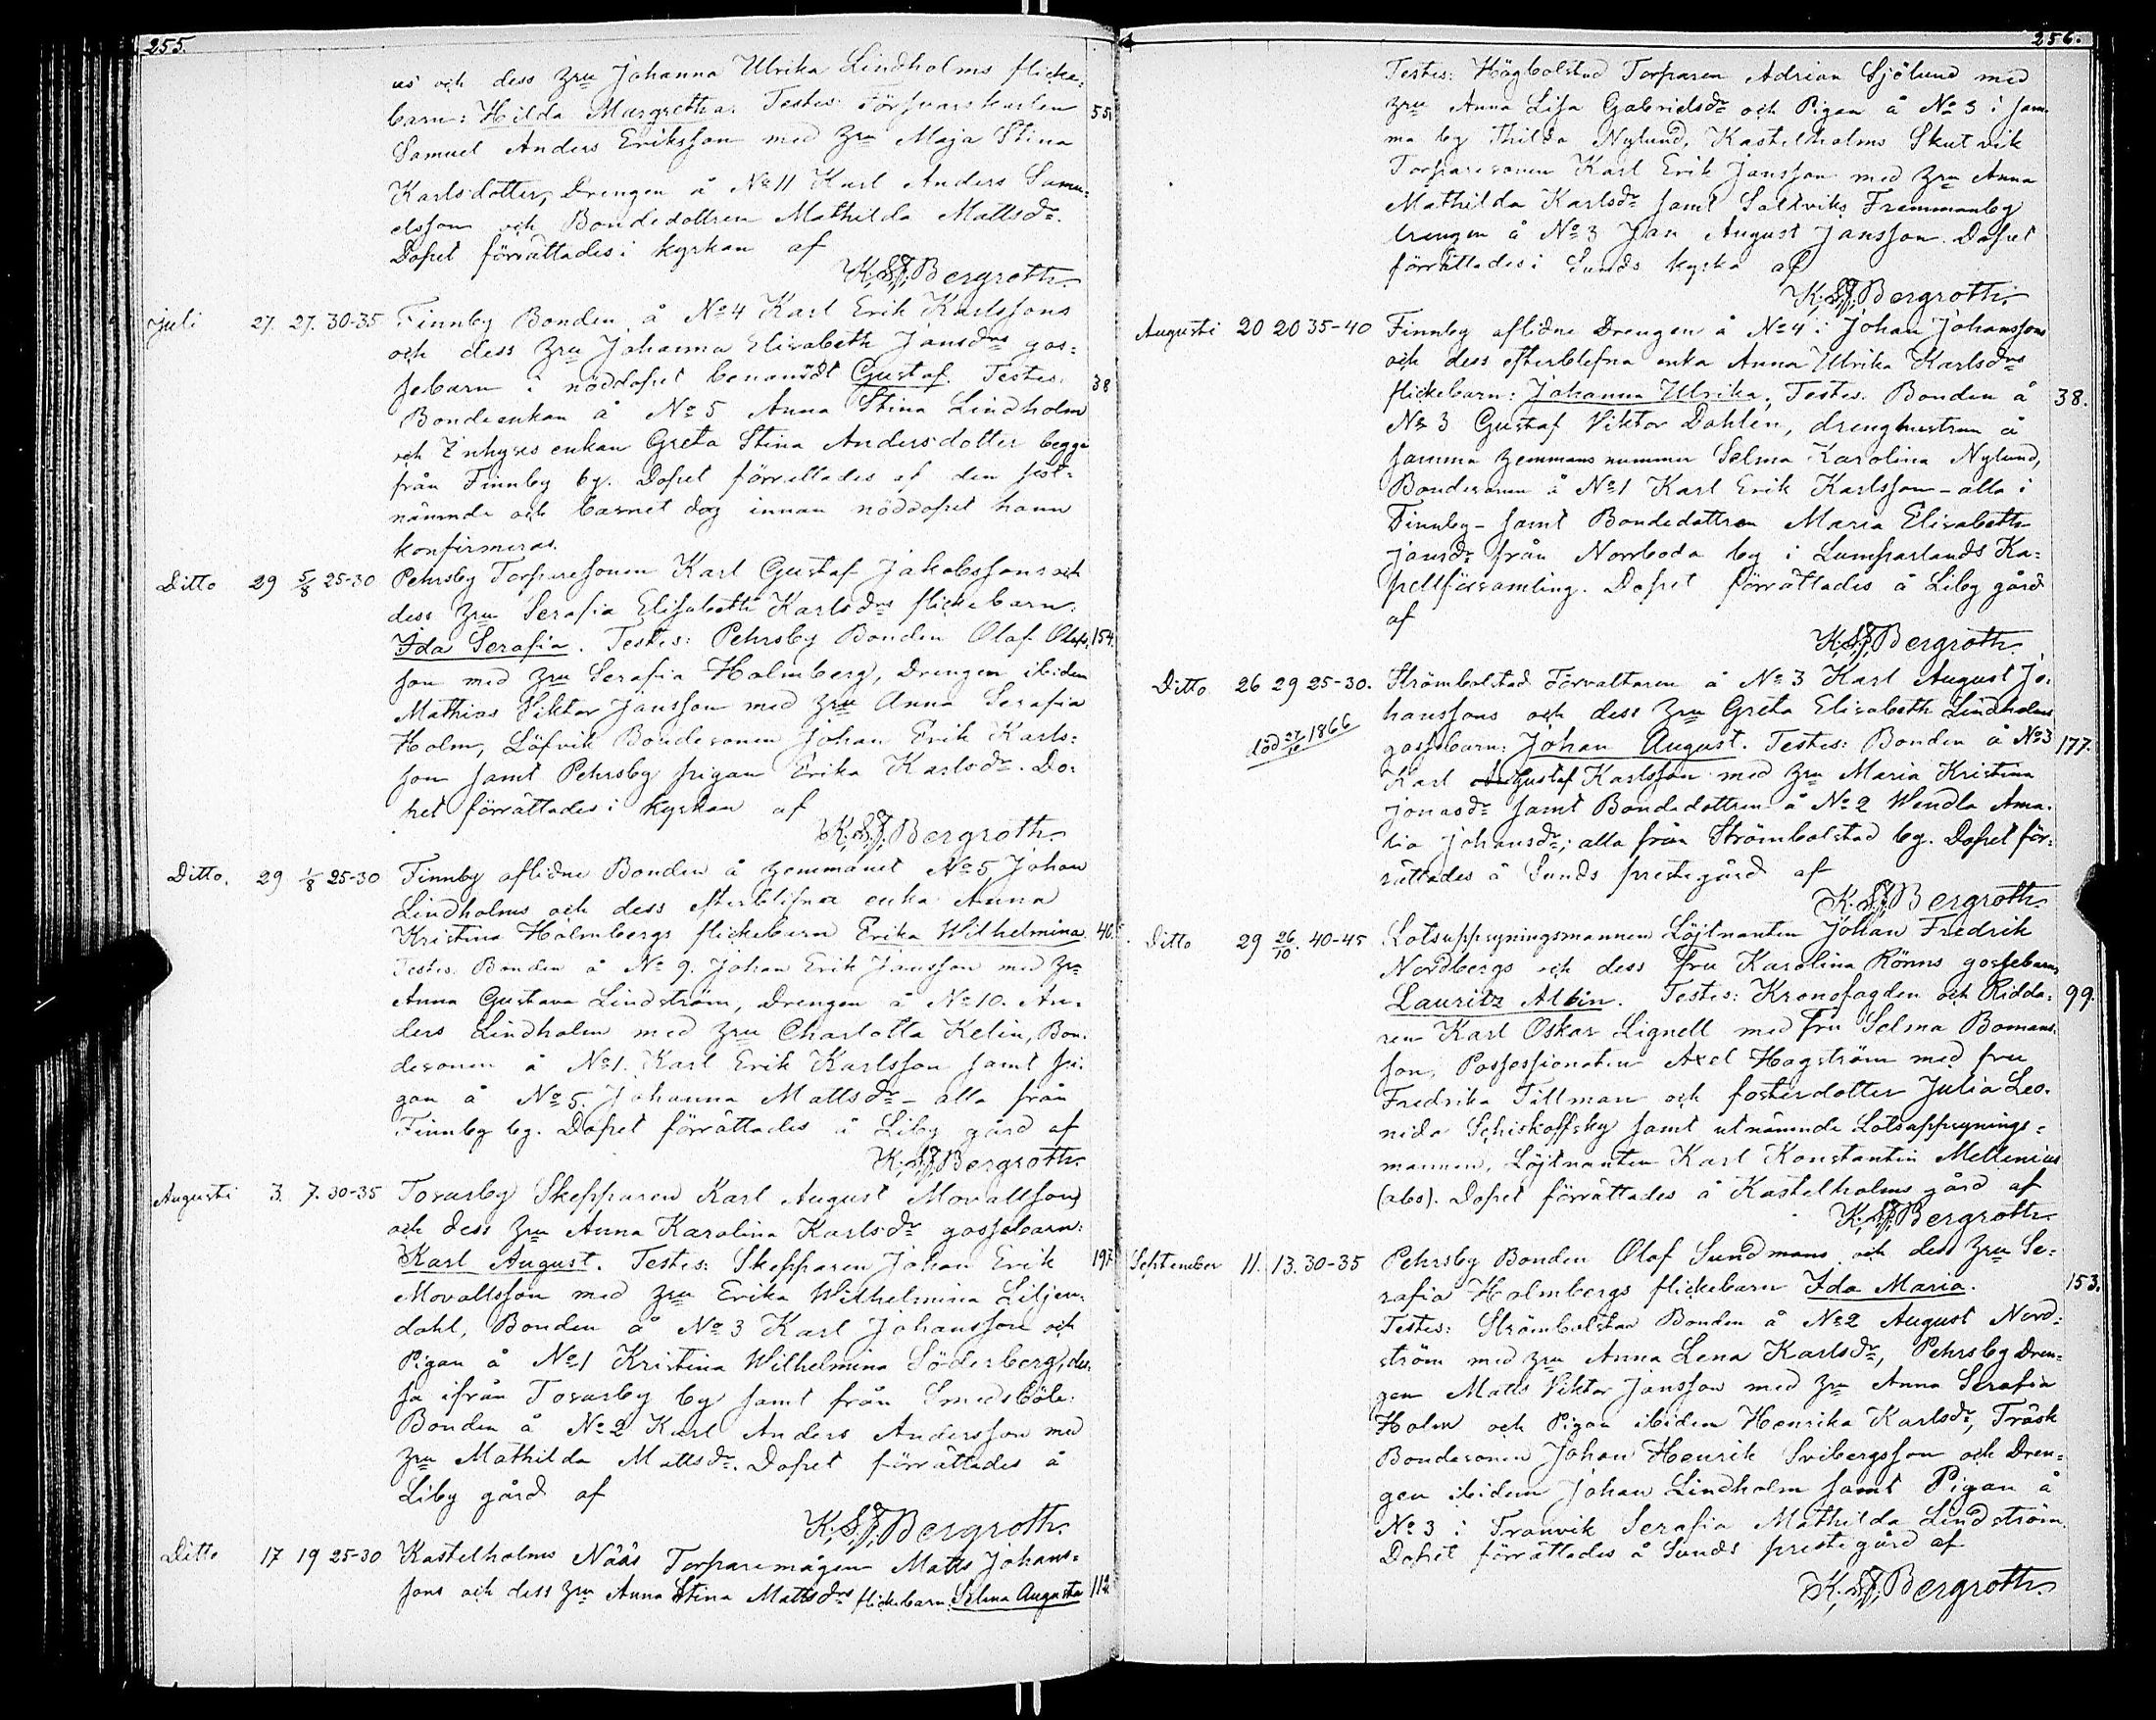 255.
us och dess hru Johanna Ulrika Lindholms flicke=
barn: Hilda Margretha. Testes: Försvarskarlen 55.
Samuel Anders Eriksson med hru Maja Stina
Karlsdotter, Drengen å No 11 Karl Anders Samu=
elsson och Bondedottren Mathilda Mattsdr.
Dopet förrättades i kyrkan af
K. S. J. Bergroth.
Juli 27. 27. 30-35 Finnby Bonden å No 4 Karl Erik Karlssons
och dess hru Johanna Elisabeth Jansdrs gos=
sebarn i nöddopet benämdt Gustaf. Testes: 38
Bondeenkan å No 5 Anna Stina Lindholm
och Inhyses enkan Greta Stina Andersdotter begge
från Finnby by. Dopet förrettades af den sist=
nämnde och barnet dog innan nöddopet hann
konfirmeras.
Ditto 29 5/8 25-30 Pehrsby Torparesonen Karl Gustaf Jakobssons och
dess hru Serafia Elisabeth Karlsdrs flickebarn:
Ida Serafia. Testes: Pehrsby Bonden Olaf Olofs= 154.
son med hru Serafia Holmberg, Drengen ibidem
Mathias Viktor Jansson med hru Anna Serafia
Holm, Löfvik Bondesonen Johan Erik Karls=
son samt Pehrsby pigan Erika Karlsdr. Do=
pet förrättades i kyrkan af
K. S. J. Bergroth.
Ditto. 29 1/8 25-30 Finnby aflidne Bonden å hemmanet No 5 Johan
Lindholms och dess efterblifna enka Anna
Kristina Holmbergs flickebarn Erika Wilhelmina. 40.
Testes. Bonden å No 9. Johan Erik Jansson med hru
Anna Gustava Lindström, Drengen å No 10. An=
ders Lindholm med hru Charlotta Kelin, Bon=
desonen å No 1. Karl Erik Karlsson samt pi=
gan å No 5. Johanna Mattsdr - alla från
Finnby by. Dopet förrättades å Liby gård af
K. S. J. Bergroth.
Augusti 3. 7. 30-35 Tosarby Skepparen Karl August Movallson
och dess hru Anna Karolina Karlsdr gossebarn:
Karl August. Testes: Skepparen Johan Erik 197
Movallsson med hru Erika Wilhelmina Liljen=
dahl, Bonden å No 3 Karl Johansson och
Pigan å No 1 Kristina Wilhelmina Söderberg, des=
sa ifrån Tosarby by samt från Smedsböle:
Bonden å No 2 Karl Anders Andersson med
hru Mathilda Mattsdr. Dopet förrättades å
Liby gård af
K. S. J. Bergroth.
Ditto 17 19 25-30 Kastelholms Nääs Torparemågen Matts Johans=
sons och dess hru Anna Stina Mattsdrs flickebarn: Selma Augusta 112
256.
Testes: Högbolstad Torparen Adrian Sjölund med
hru Anna Lisa Gabrielsdr och Pigan å No 3 i sam
ma by Thilda Nylund, Kastelholms Skutvik
Torparesonen Karl Erik Jansson med hru Anna
Mathilda Karlsdr samt Saltviks Fremmanby
drengen å No 3 Jan August Jansson. Dopet
förrättades i Sunds kyrka af
K. S. J. Bergroth.
Augusti 20 20 35-40 Finnby aflidne Drengen å No 4: Johan Johanssons
och dess efterblefna enka Anna Ulrika Karlsdrs
flickebarn: Johanna Ulrika, Testes. Bonden å 38.
No 3 Gustaf Viktor Dahlén, drenghustrun å
samma hemmans nummer Selma Karolina Nylund,
Bondesonen å No 1 Karl Erik Karlsson - alla i
Finnby - samt Bondedottren Maria Elisabeth
Jansdr från Norrboda by i Lumparlands Ka=
pellförsamling. Dopet förrättades å Liby gård
af
K. S. J. Bergroth.
Ditto 26 29 25-30. Strömbolstad Förvaltaren å No 3 Karl August Jo=
hanssons och dess hru Greta Elisabeth Lindholms
död 27/10 1866 gossebarn: Johan August. Testes: Bonden å No 3 177.
Karl Gustaf Karlsson med hru Maria Kristina
Jonasdr samt Bondedottren å No 2 Wendla Ama=
lia Johansdr; alla från Strömbolstad by. Dopet för=
rättades å Sunds prestegård af
K. S. J. Bergroth.
Ditto 29 26/10. 40-45 Lotsuppsyningsmannen Löjtnanten Johan Fredrik
Nordbergs och dess fru Karolina Rönns gossebarn
Lauritz Albin. Testes: Kronofogden och Ridda= 99.
ren Karl Oskar Lignell med fru Selma Bomans=
son, Possessionaten Axel Hagström med fru
Fredrika Tillman och fosterdotter Julia Leo=
nida Schiskoffsky samt utnämnde Lotsuppsynings=
mannen, Löjtnanten Karl Konstantin Mellenius
(abs). Dopet förrättades å Kastelholms gård af
K. S. J. Bergroth.
September 11. 13. 30-35 Pehrsby Bonden Olof Sundmans och dess hru Se=
rafia Holmbergs flickebarn Ida Maria. 153.
Testes: Strömbolstad Bonden å No 2 August Nord=
ström med hru Anna Lena Karlsdr, Pehrsby Dren=
gen Matts Viktor Jansson med hru Anna Serafia
Holm och Pigan ibidem Henrika Karlsdr, Träsk
Bondesonen Johan Henrik Svibergsson och Dren=
gen ibidem Johan Lindholm samt Pigan å
No 3 i Tranvik Serafia Mathilda Lindström.
Dopet förrättades å Sunds prestegård af
K. S. J. Bergroth.